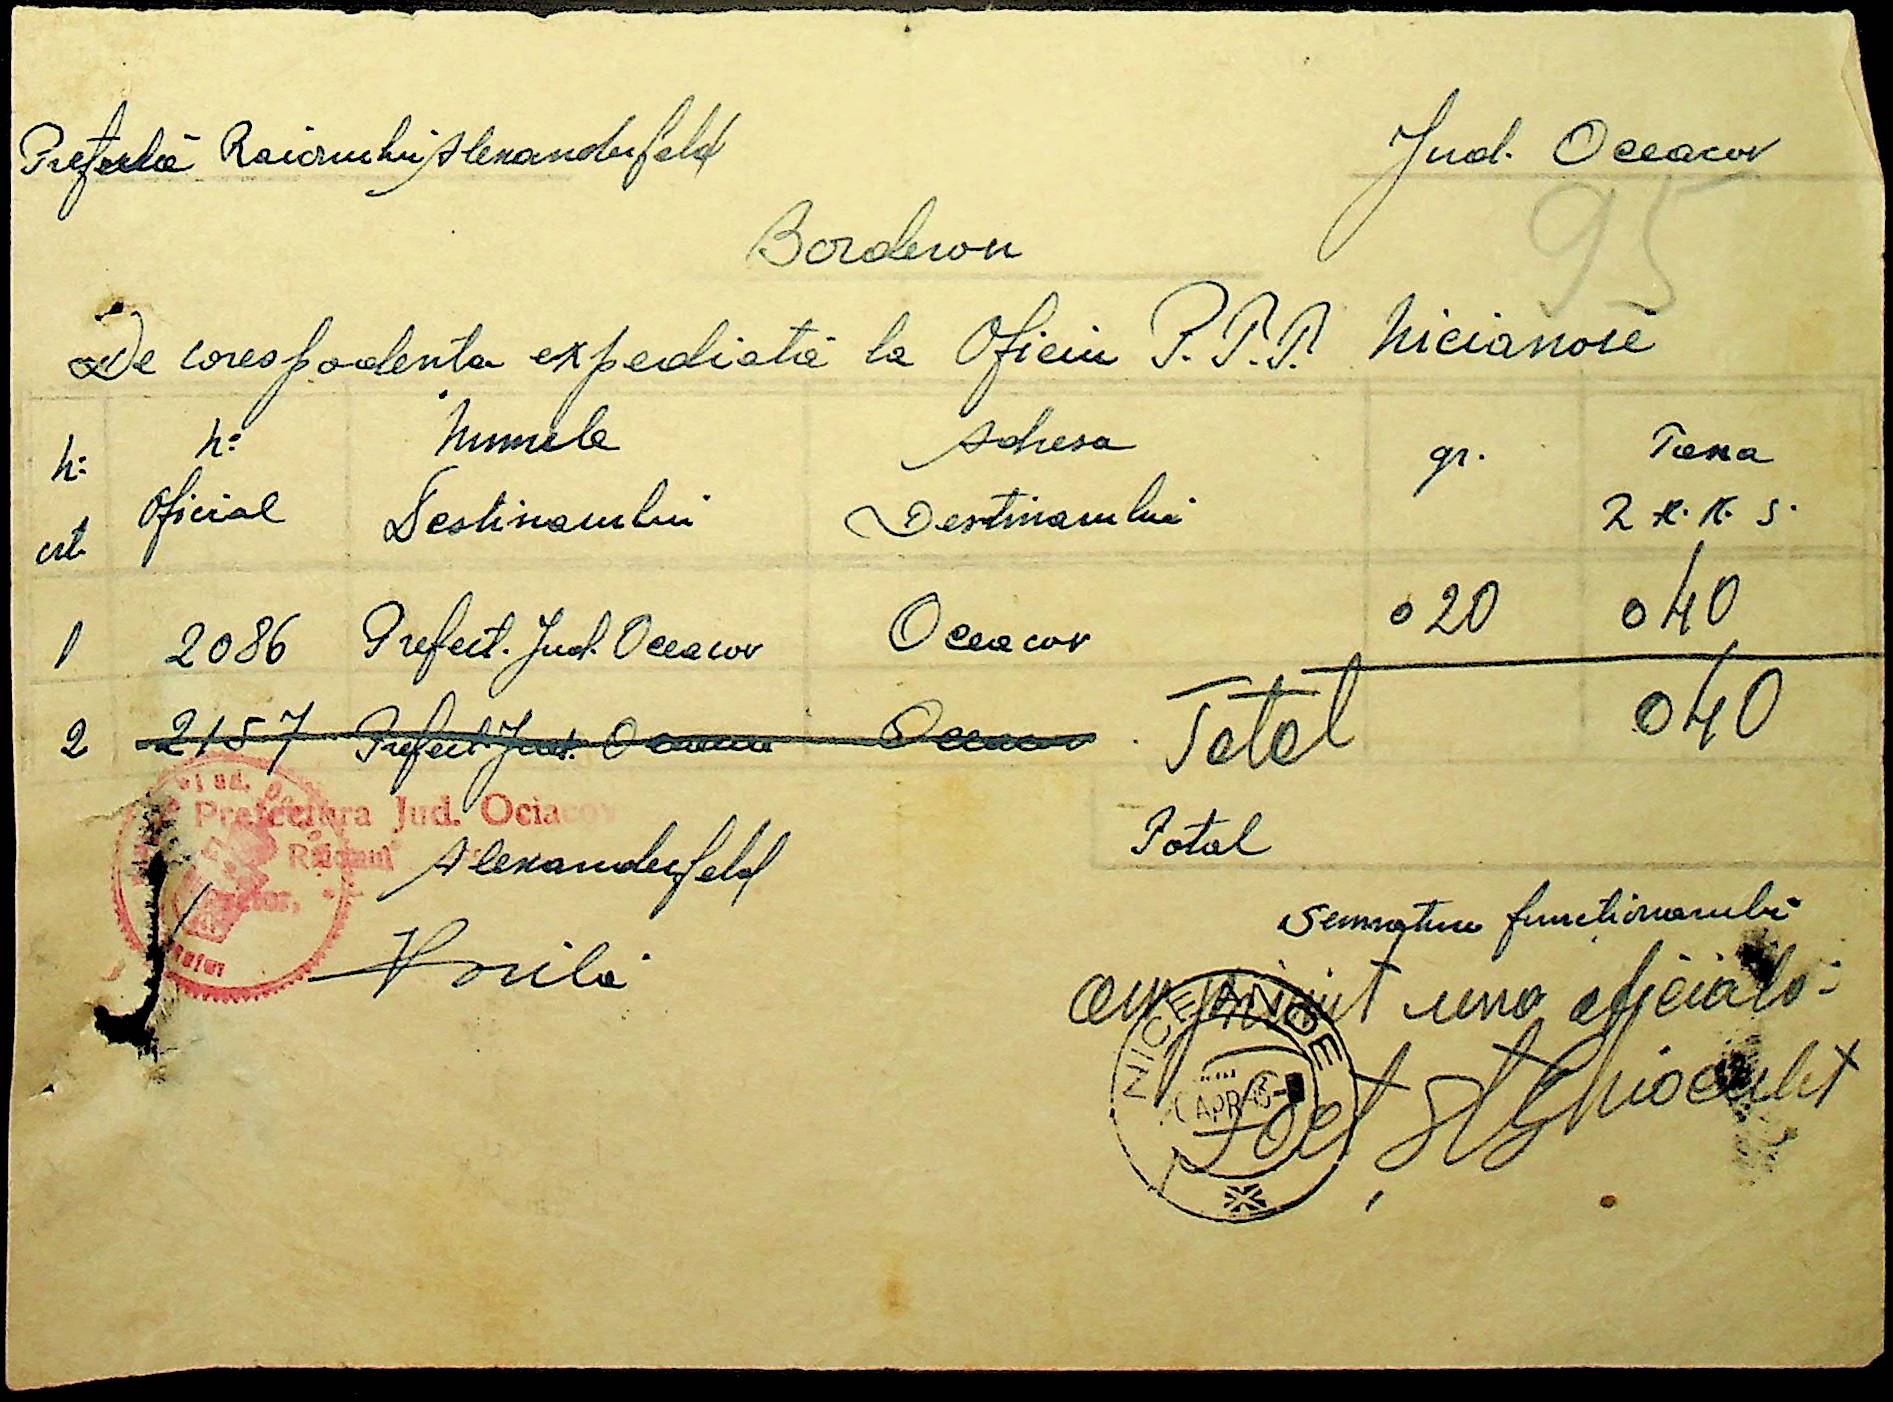 Prefectia Raionului Alexanderfeld
Jud. Oceacov
95
Borderou
De corespodenta expediată la Oficiu P.T.T. Nicianoie
N: crt.
N: Oficial
Numele Destinarului
Adresa Destinarului
gr.
Taxa R.K.K.S.
1 2086 Prefect. Jud. Oceacov Oceacov 020 040
2 2157 Prefect. Jud. Oceacov Total 040
Prefectura Jud. Ociacov
Raionul Alexanderfeld
Total
Semnatura functionarului
am primit una oficială
NICEANOE
APR